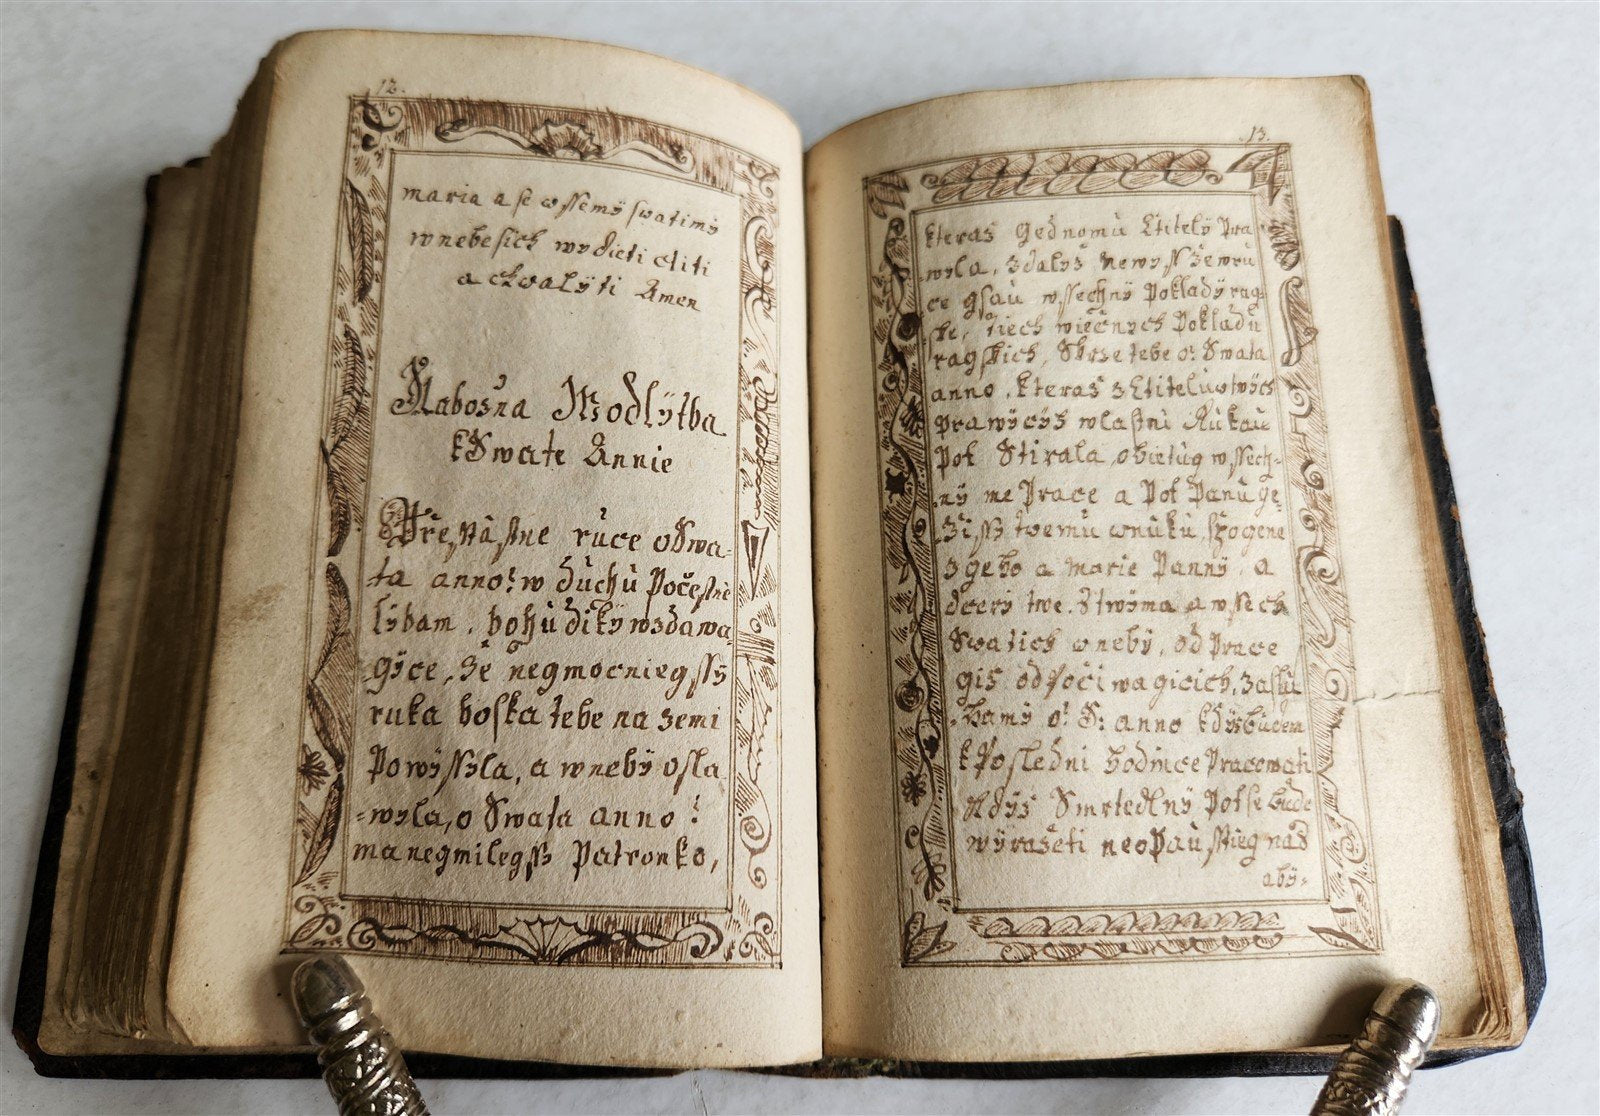 12.
maria a se wssemÿ swatimÿ
wnebesich wydieti ctiti
a chwalÿti Amen
Nabožna Modlÿtba
kSwate Annie
Přesstiastne ruce oSwa-
ta anno! w duchu Počestně
lÿbam, bohu dikÿ wzdawa-
gÿce, že negmocniegssÿ
ruka boska tebe na zemi
Powÿssÿla, a wnebÿ osla
=wyla, o Swata anno!
ma negmilegssÿ Patronko,
13.
kteraž Gednomu Ctitelÿ Pra
wyla, zdalÿž newÿss že wru
ce gsau wssechnÿ Pokladÿ rag-
ske, tiech wiečnych Pokladu
ragskich, Skrze tebe o! Swata
anno, kteraž z Ctitelu twÿch
Prawÿcÿh wlastni Rukau
Pot Stirala, obietug wssech-
nÿ me Prace a Pot Panu ge-
žissy twemu wnuku, spogene
z geho a Marie Pannÿ, a
dcerÿ twe. Stwÿma a wssech
Swatich wnebÿ, od Prace
giž odPočiwagicich, zaslu
hamÿ o! S: anno kdÿž budem
kPosledni hodince Pracowati
Kdÿž Smrtedlnÿ Pot se bude
wÿražeti neoPausstieg nas
abÿ=